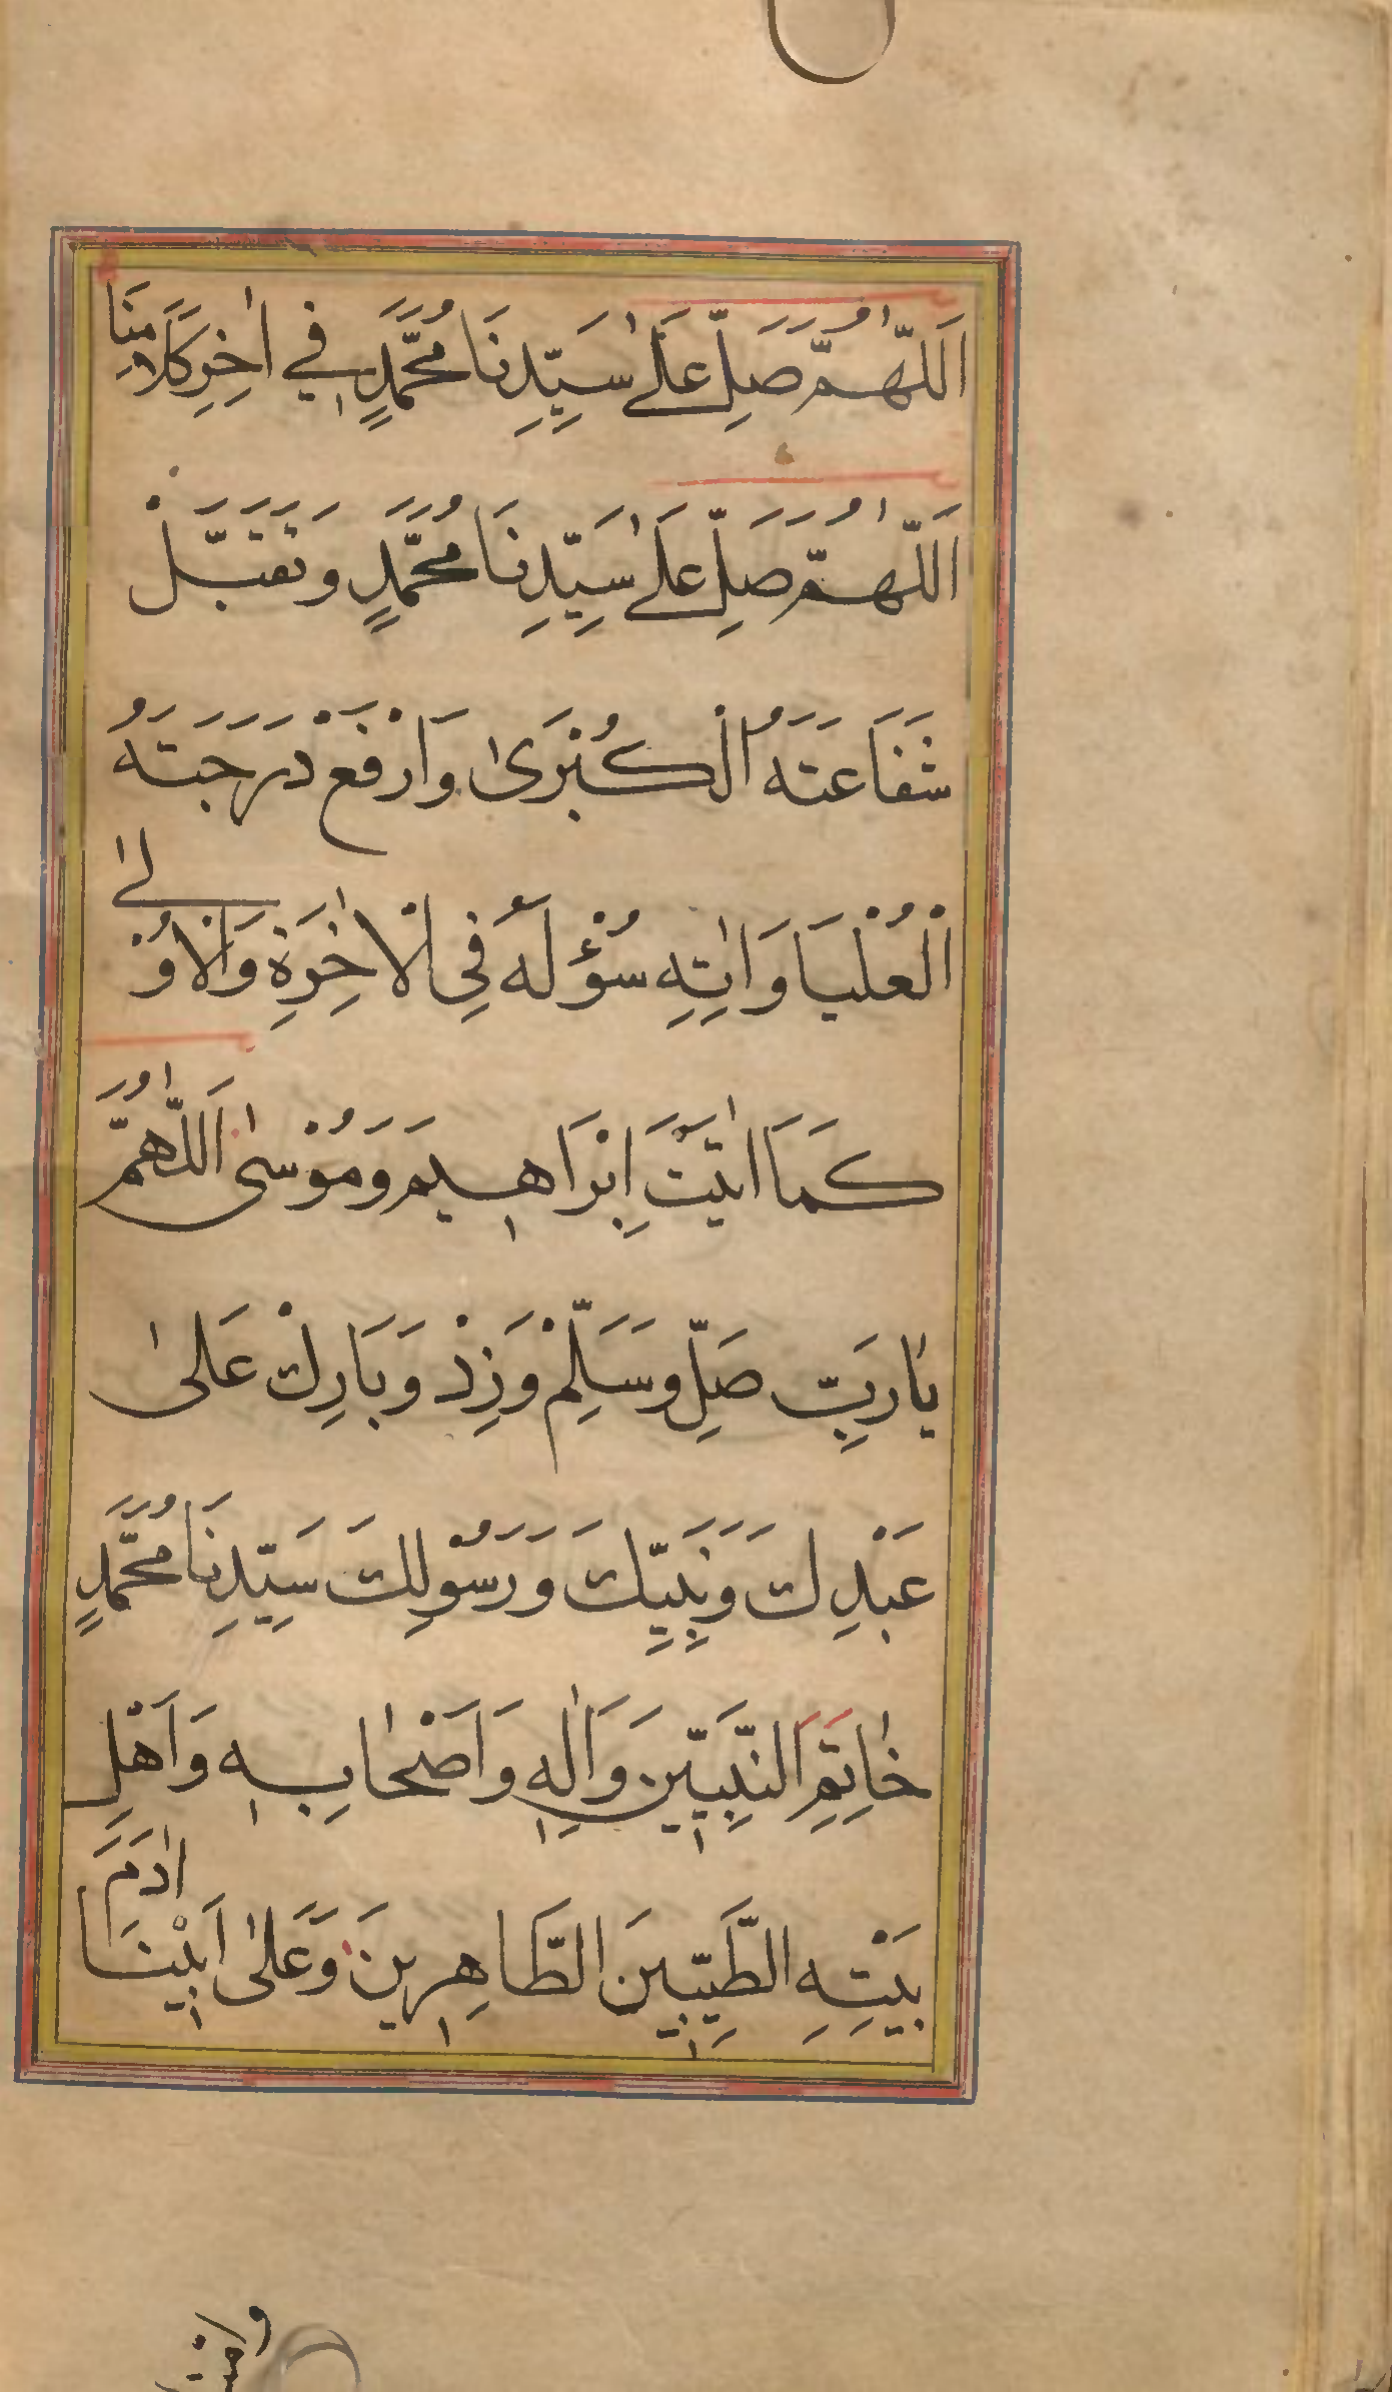 اَللّٰهُمَّ صَلِّ عَلَىٰ سَيِّدِنَا مُحَمَّدٍ فِي اٰخِرِ كَلَامِنَا
اَللّٰهُمَّ صَلِّ عَلَىٰ سَيِّدِنَا مُحَمَّدٍ وَتَقَبَّلْ
شَفَاعَتَهُ الْكُبْرَىٰ وَارْفَعْ دَرَجَتَهُ
الْعُلْيَا وَاٰتِهِ سُؤْلَهُ فِى الْاٰخِرَةِ وَالْاُوْلٰى
كَمَا اٰتَيْتَ اِبْرَاهِيمَ وَمُوْسٰى اَللّٰهُمَّ
يٰارَبِّ صَلِّ وَسَلِّمْ وَزِدْ وَبَارِكْ عَلٰى
عَبْدِكَ وَنَبِيِّكَ وَرَسُوْلِكَ سَيِّدِنَا مُحَمَّدٍ
خٰاتَمِ النَّبِيّٖنَ وَاٰلِهٖ وَاَصْحٰابِهٖ وَاَهْلِ
بَيْتِهِ الطَّيِّبِينَ الطَّاهِرِينَ وَعَلٰى اَبٖينَا اٰدَمَ